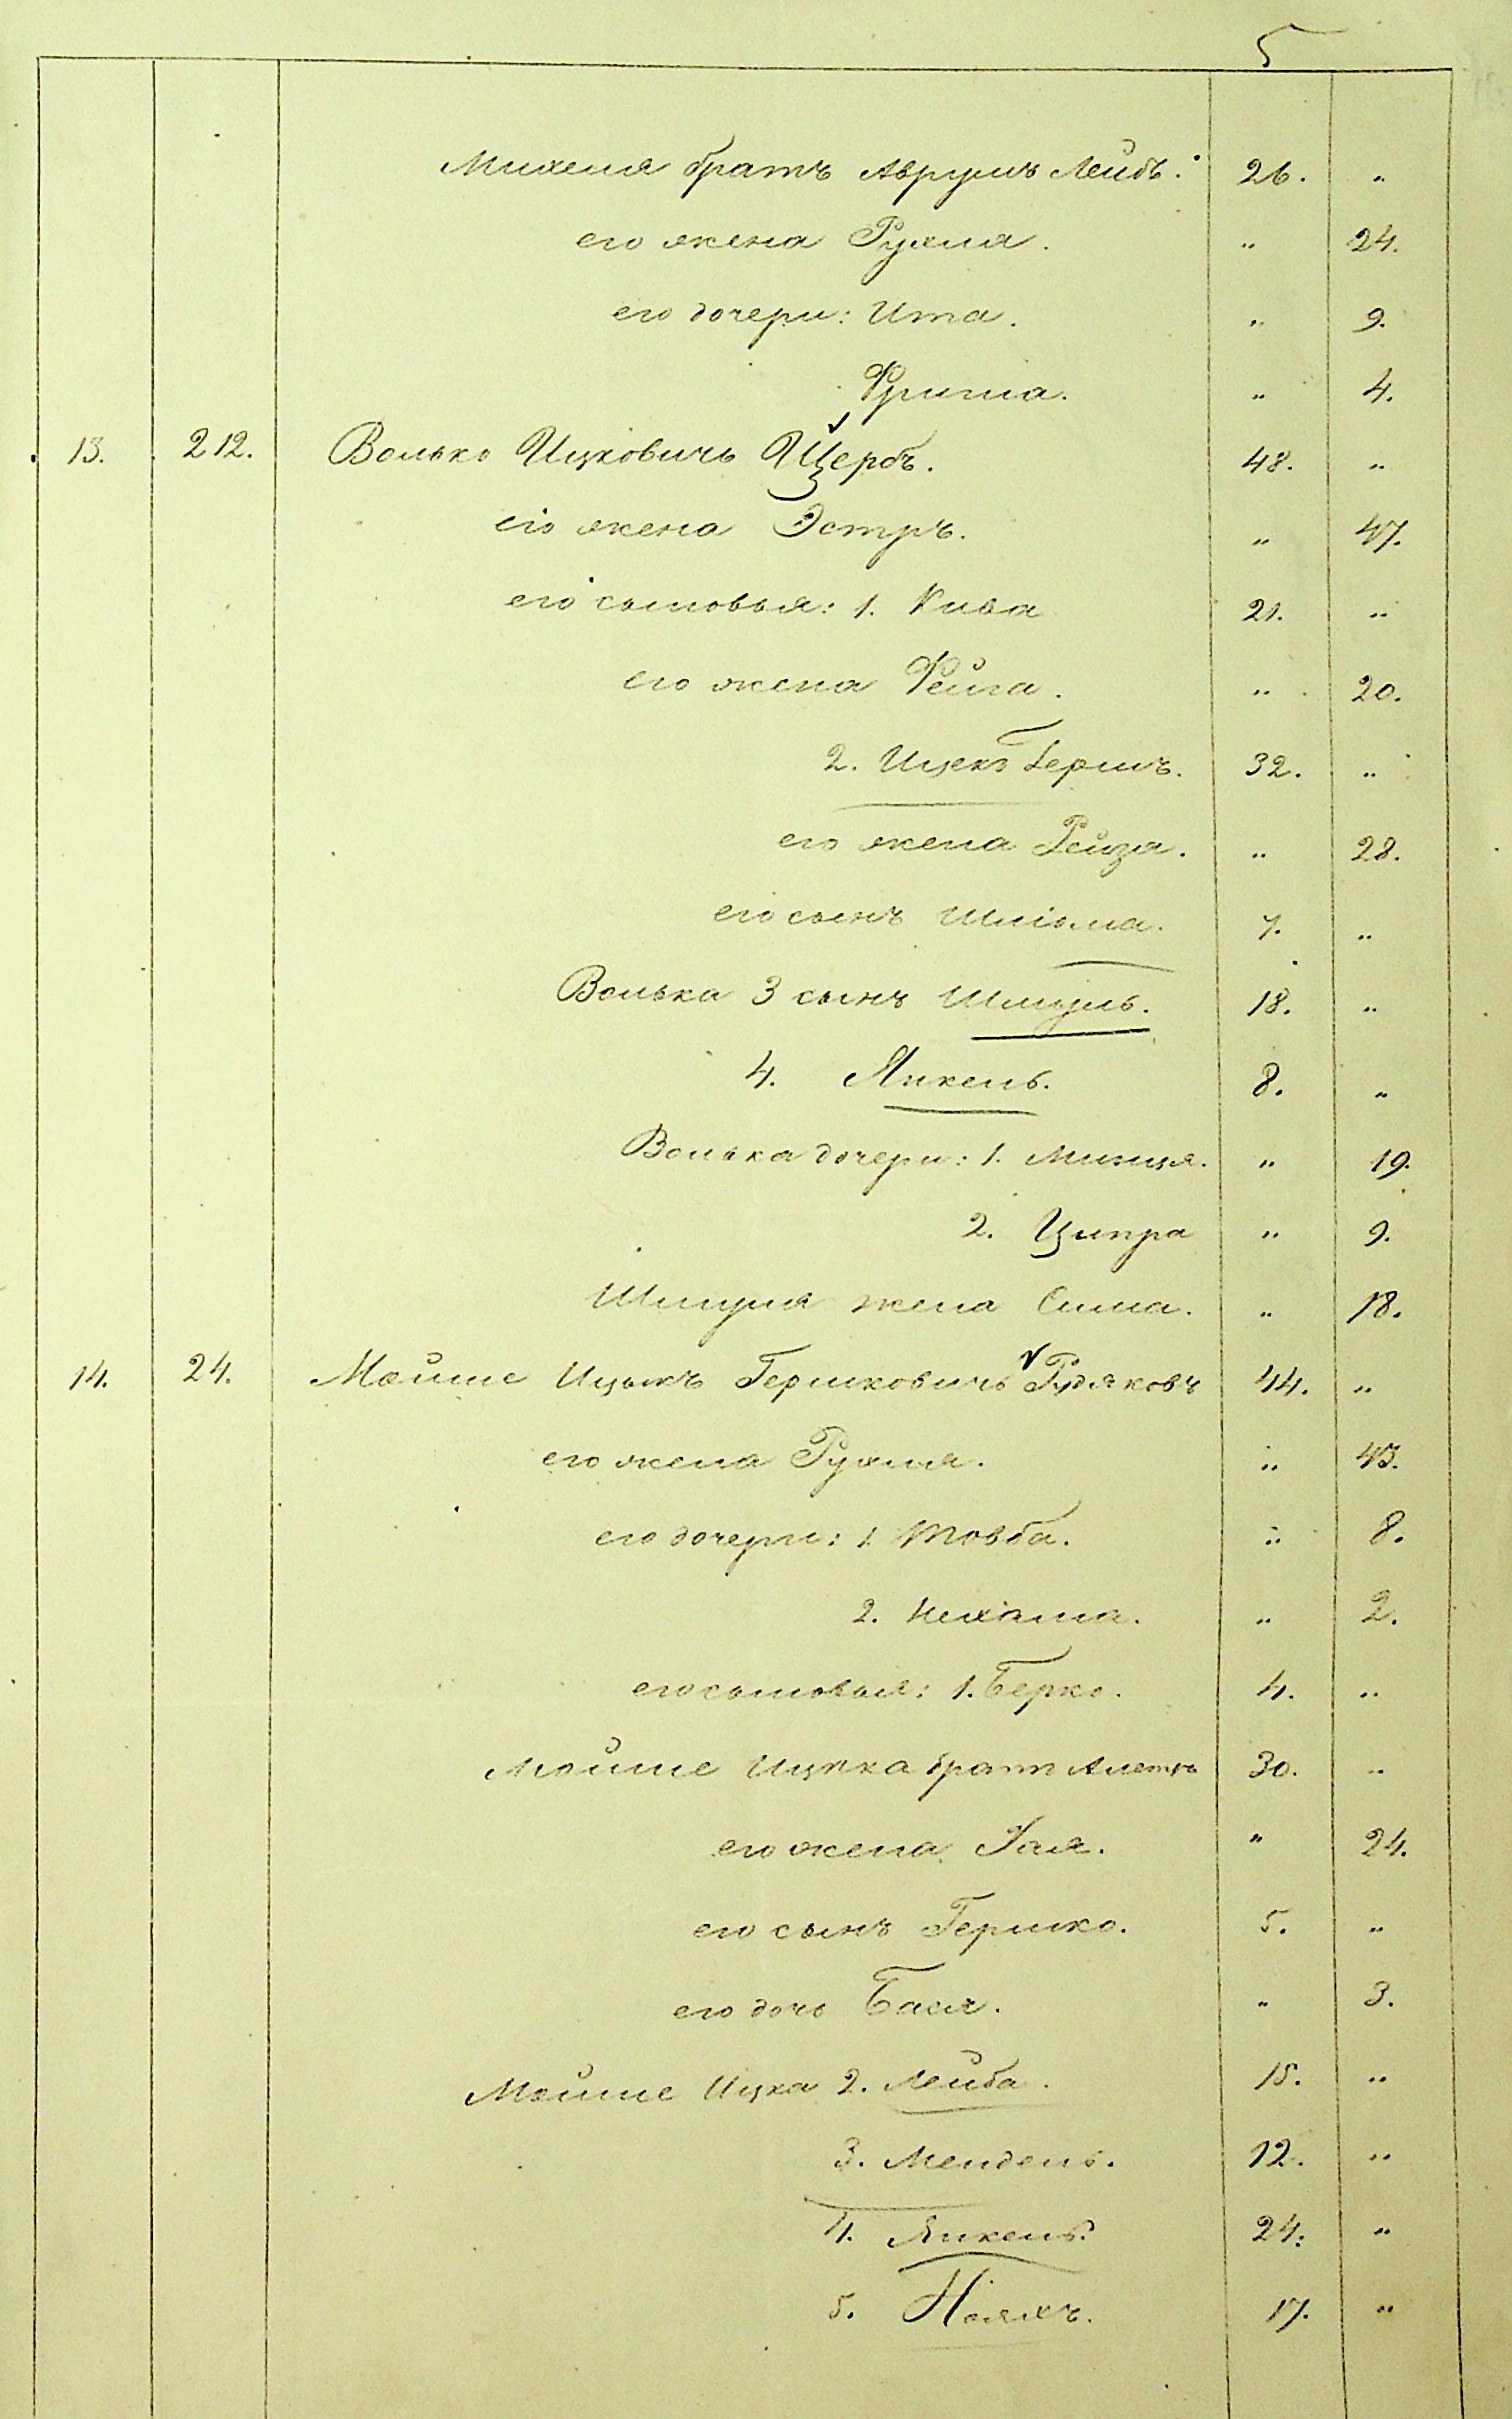 5
Михеля братъ Аврумъ Лейбъ. 26. "
его жена Рухля. " 24.
его дочери: Ита. " 9.
Фрима. " 4.
13. 212. Волько Ицковичъ Щербъ. 48. "
его жена Эстръ. " 47.
его сыновья: 1. Кива 21. "
его жена Фейга. " 20.
2. Ицекъ Гершъ. 32. "
его жена Рейза. " 28.
его сынъ Шліома. 7. "
Волька 3 сынъ Шмуль. 18. "
4. Янкель. 8. "
Волька дочери: 1. Минця. " 19.
2. Ципра " 9.
Шмуля жена Сима. " 18.
14. 24. Мойше Ицыкъ Гершковичъ Рудяковъ 44. "
его жена Рухля. " 43.
его дочери: 1. Товба. " 8.
2. Нехама. " 2.
его сыновья: 1. Берко. 4. "
Мойше Ицка братъ Алетръ 30. "
его жена Хая. " 24.
его сынъ Гершко. 5. "
его дочь Бася. " 3.
Мойше Ицка 2. Лейба. 15. "
3. Мендель. 12. "
4. Янкель. 24. "
5. Нояхъ. 17. "